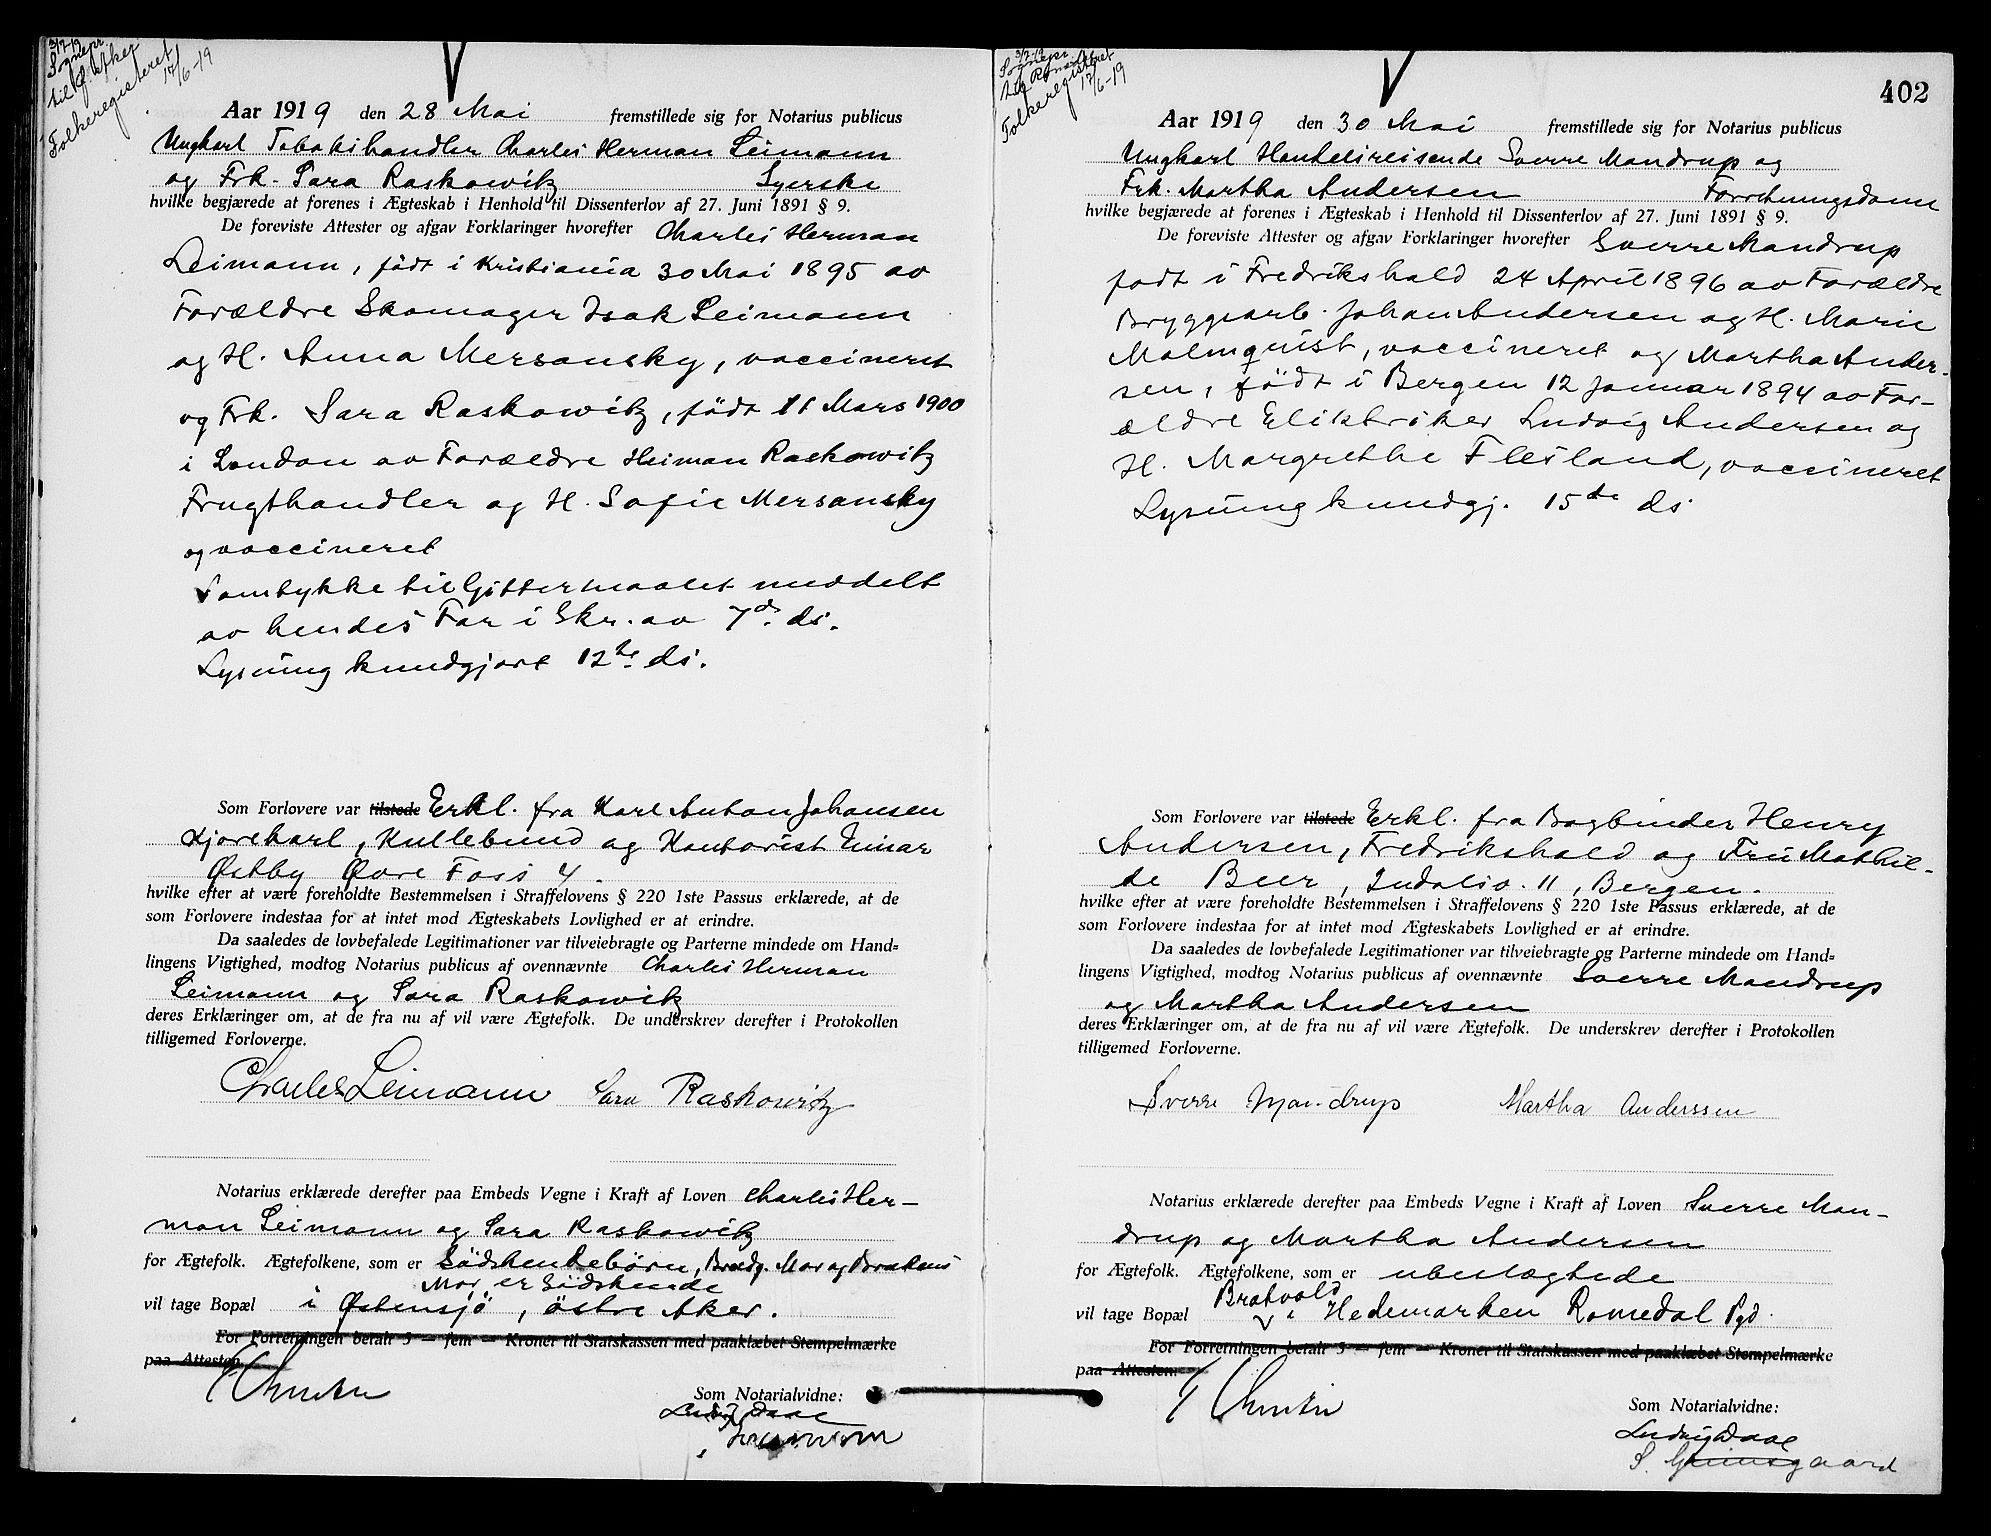 3/7-19
Sognepr
til Ø. Aker
Folkeregisteret
17/6-19
Aar 1919 den 28 Mai fremstillede sig for Notarius publicus
Ungkarl Tobakshandler Charles Herman Leimann
og Frk. Sara Raskowitz Syerske
hvilke begjærede at forenes i Ægteskab i Henhold til Dissenterlov af 27. Juni 1891 § 9.
De foreviste Attester og afgav Forklaringer hvorefter Charles Herman
Leimann, født i Kristiania 30 Mai 1895 av
Forældre Skomager Isak Leimann
og H. Anna Mersansky, vaccineret
og Frk. Sara Raskowitz, født 11 Mars 1900
i London av Forældre Heiman Raskowitz
Frugthandler og H. Sofie Mersansky
og vaccineret
Samtykke til Giftermaalet meddelt
av hendes Far i Skr. av 7d. ds.
Lysning kundgjort 12te ds.
Som Forlovere var tilstede Erkl. fra Karl Anton Johansen
Kjørekarl, Kullebund og Kontorist Einar
Østby Øvre Foss 4.
hvilke efter at være foreholdte Bestemmelsen i Straffelovens § 220 1ste Passus erklærede, at de
som Forlovere indestaa for at intet mod Ægteskabets Lovlighed er at erindre.
Da saaledes de lovbefalede Legitimationer var tilveiebragte og Parterne mindede om Hand=
lingens Vigtighed, modtog Notarius publicus af ovennævnte Charles Herman
Leimann og Sara Raskowitz
deres Erklæringer om, at de fra nu af vil være Ægtefolk. De underskrev derefter i Protokollen
tilligemed Forloverne.
Charles Leimann Sara Raskowitz
Notarius erklærede derefter paa Embeds Vegne i Kraft af Loven Charles Her-
man Leimann og Sara Raskowitz
for Ægtefolk. Ægtefolkene, som er Sødskendebørn, Brudg. Mor og Brudens
Mor er Södskende
vil tage Bopæl i Østensjö, östre Aker.
For Forretningen betalt 5 — fem — Kroner til Statskassen med paaklæbet Stempelmærke
paa Attesten.
Som Notarialvidne:
Ludvig Daae
402
3/7-19
Sognepr
Folkeregisteret
17/6-19
Aar 1919 den 30 Mai fremstillede sig for Notarius publicus
Ungkarl Handelsreisende Sverre Mandrup og
Frk. Martha Andersen Forretningsdame
hvilke begjærede at forenes i Ægteskab i Henhold til Dissenterlov af 27. Juni 1891 § 9.
De foreviste Attester og afgav Forklaringer hvorefter Sverre Mandrup
født i Fredrikshald 24 April 1896 av Forældre
Bryggearb. Johan Andersen og H. Marie
Malmquist, vaccineret og Martha Ander-
sen, født i Bergen 12 Januar 1894 av For-
ældre Eliktriker Ludvig Andersen og
H. Margrethe Flesland, vaccineret
Lysning kundgj. 15de ds.
Som Forlovere var tilstede Erkl. fra Bogbinder Henry
Andersen, Fredrikshald og Fru Mathil-
de Beer, Indalsv. 11, Bergen.
hvilke efter at være foreholdte Bestemmelsen i Straffelovens § 220 1ste Passus erklærede, at de
som Forlovere indestaa for at intet mod Ægteskabets Lovlighed er at erindre.
Da saaledes de lovbefalede Legitimationer var tilveiebragte og Parterne mindede om Hand=
lingens Vigtighed, modtog Notarius publicus af ovennævnte Sverre Mandrup
og Martha Andersen
deres Erklæringer om, at de fra nu af vil være Ægtefolk. De underskrev derefter i Protokollen
tilligemed Forloverne.
Sverre Mandrup Martha Anderssen
Notarius erklærede derefter paa Embeds Vegne i Kraft af Loven Sverre Man-
drup og Martha Andersen
for Ægtefolk. Ægtefolkene, som er ubeslægtede
vil tage Bopæl Bratvold i Hedemarken Romedal Pgd.
For Forretningen betalt 5 — fem — Kroner til Statskassen med paaklæbet Stempelmærke
paa Attesten.
Som Notarialvidne:
Ludvig Daae
S. Grimsgaard